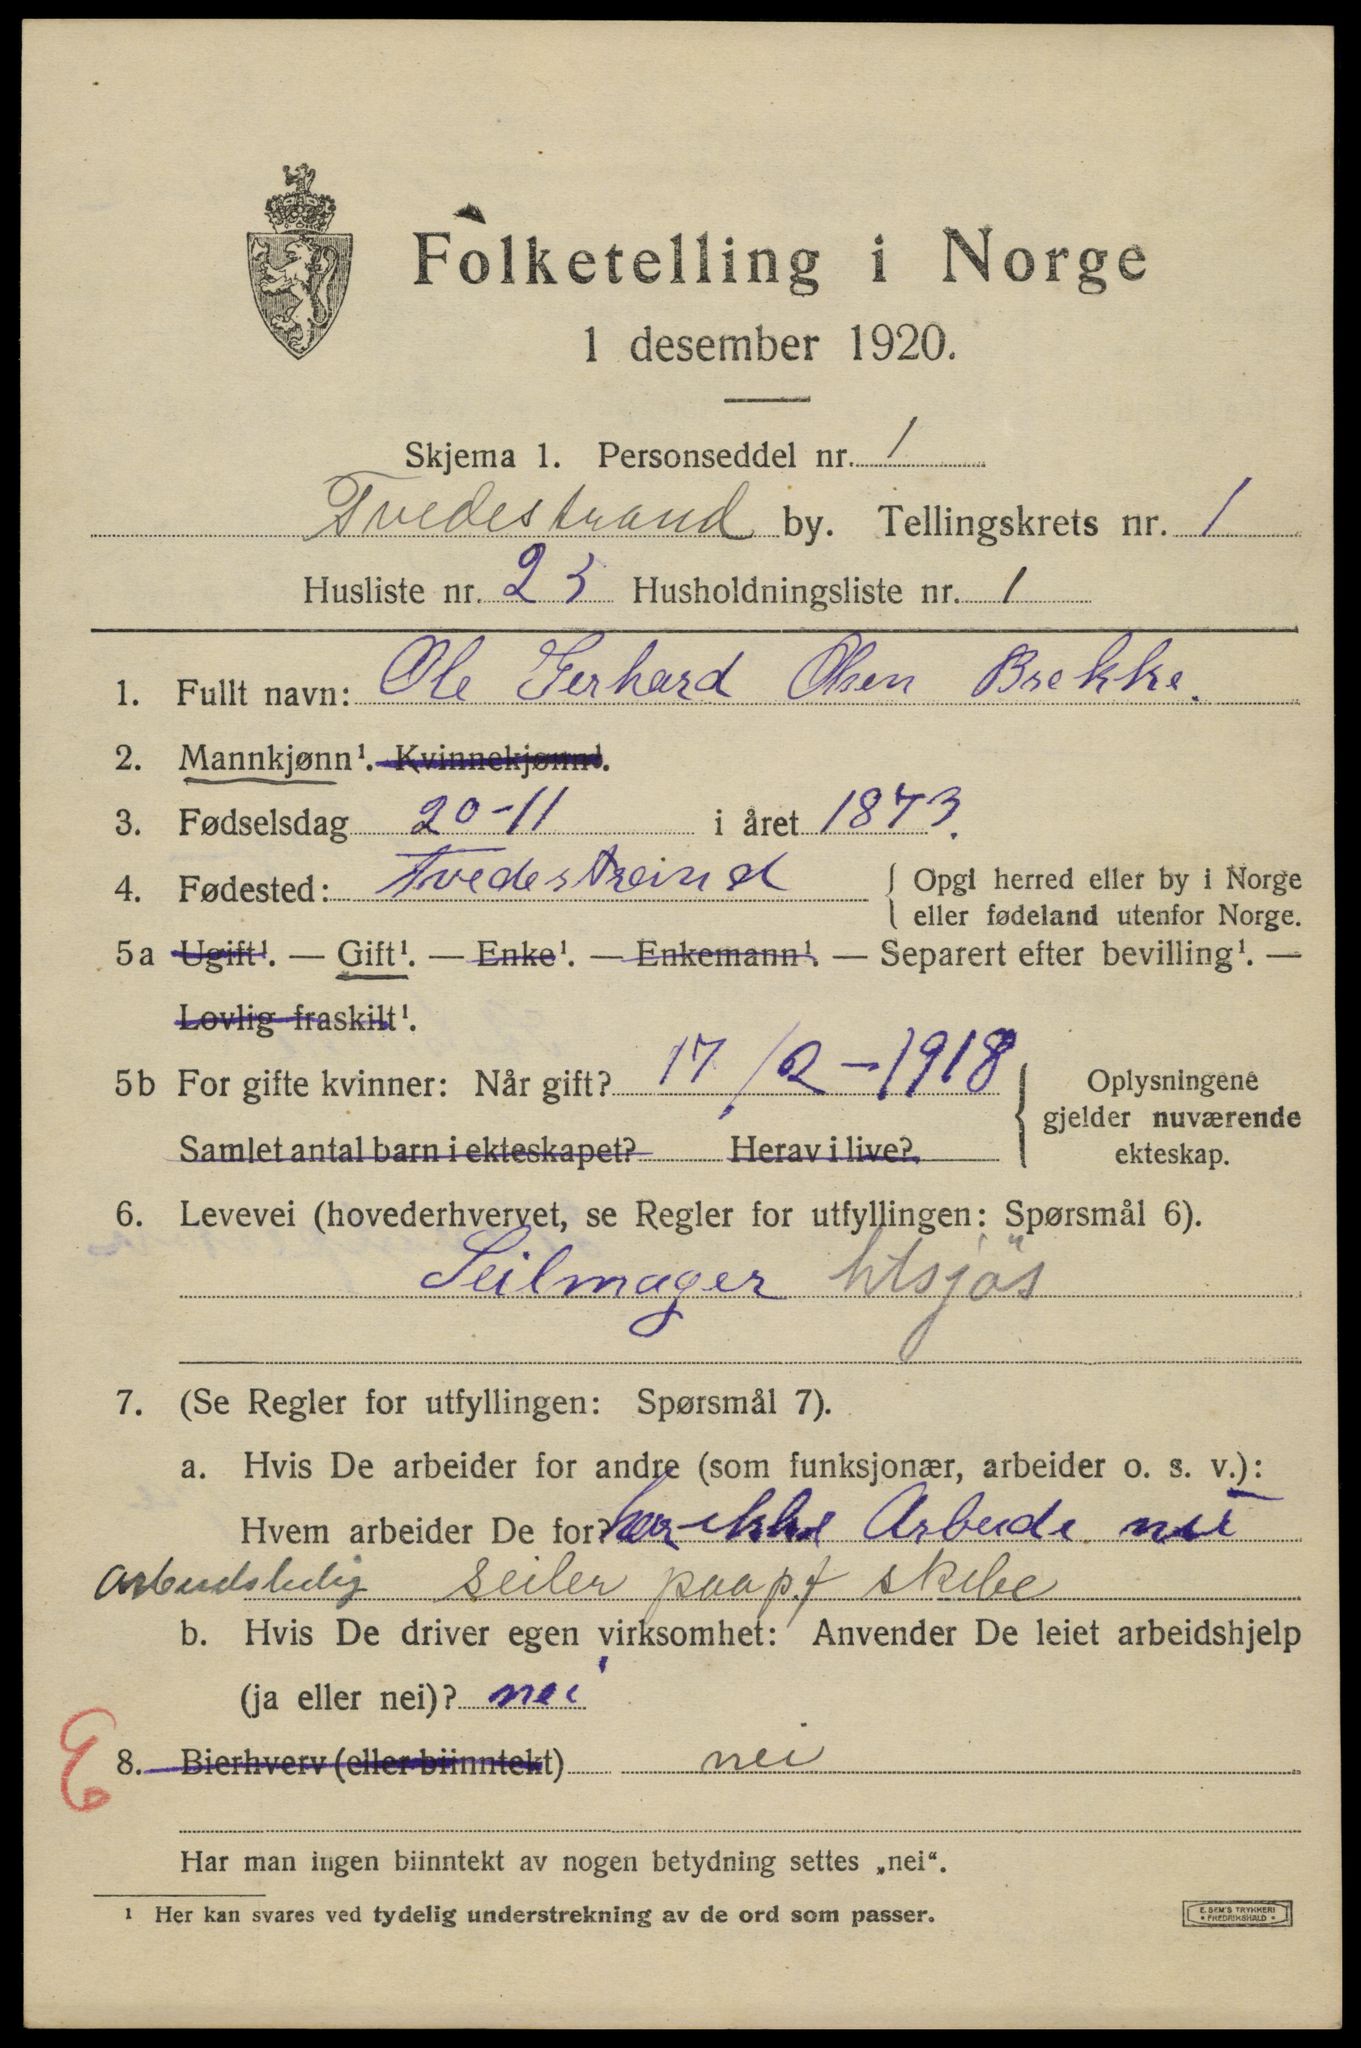 Folketelling i Norge
1 desember 1920.
Skjema 1. Personseddel nr. 1
Tvedestrand by. Tellingskrets nr. 1
Husliste nr. 23 Husholdningsliste nr. 1
1. Fullt navn: Ole Gerhard Olsen Brekke.
2. Mannkjønn¹. Kvinnekjønn¹.
3. Fødselsdag 20-11 i året 1873.
4. Fødested: Tvedestrand { Opgi herred eller by i Norge
eller fødeland utenfor Norge.
5a Ugift¹. — Gift¹. — Enke¹. — Enkemann¹. — Separert efter bevilling¹. —
Lovlig fraskilt¹.
5b For gifte kvinner: Når gift? 17/2-1918
Samlet antal barn i ekteskapet? Herav i live?
} Oplysningene
gjelder nuværende
ekteskap.
6. Levevei (hovederhvervet, se Regler for utfyllingen: Spørsmål 6).
Seilmager Utsjøs
7. (Se Regler for utfyllingen: Spørsmål 7).
a. Hvis De arbeider for andre (som funksjonær, arbeider o. s. v.):
Hvem arbeider De for? har ikke Arbeide nu
arbeidsledig seiler paa skibe
b. Hvis De driver egen virksomhet: Anvender De leiet arbeidshjelp
(ja eller nei)? nei
E 8. Bierhverv (eller biinntekt) nei
Har man ingen biinntekt av nogen betydning settes „nei“.
¹ Her kan svares ved tydelig understrekning av de ord som passer.
E. SEM'S TRYKKERI
• FREDRIKSHALD •